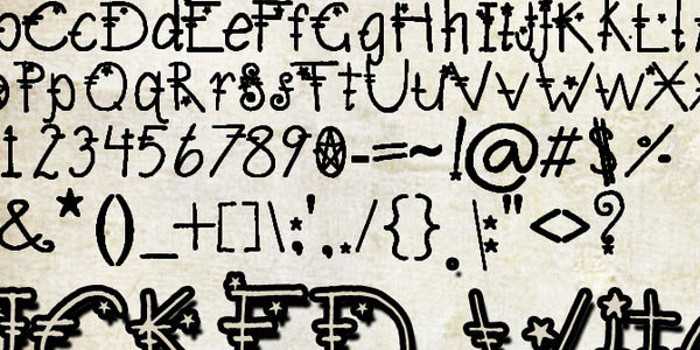 C c D d E e F f G g H h I i J j K k L l
P p Q q R r S s T t U u V v W w X
1 2 3 4 5 6 7 8 9 0 - = ~ ! @ # $ %
& * ( ) _ + [ ] \ : ' , . / { } . | : " < > ?